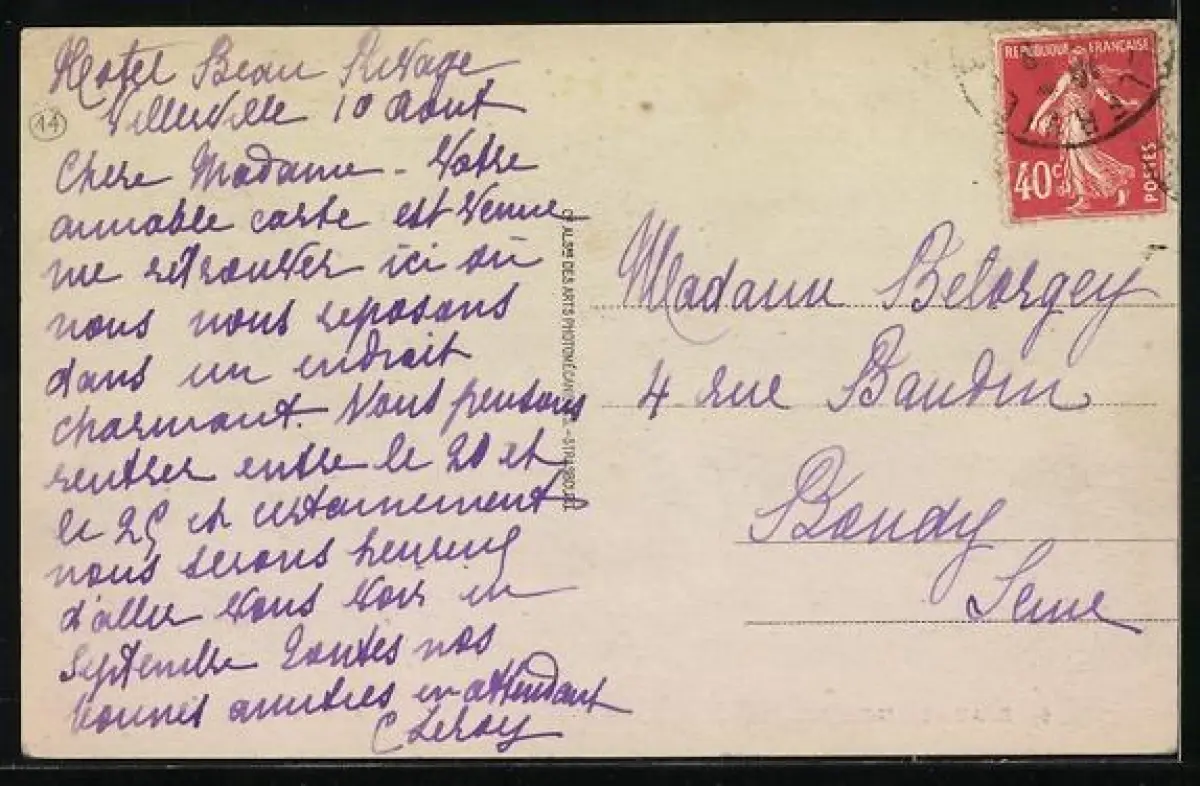 Hotel Beau Rivage
Villerville 10 Aout
14
Chere Madame - Votre
aimable carte est venue
me retrouver ici où
nous nous reposons
dans un endroit
charmant. Nous pensons
rentrer entre le 20 et
le 25 et certainement
nous serons heureux
d'aller vous voir en
Septembre Toutes nos
bonnes amitiés en attendant
C Leroy
CIE ALSNE DES ARTS PHOTOMÉCANIQUES - STRASBOURG
REPUBLIQUE FRANÇAISE
40c
POSTES
Madame Belorgey
4 rue Baudin
Bondy
Seine